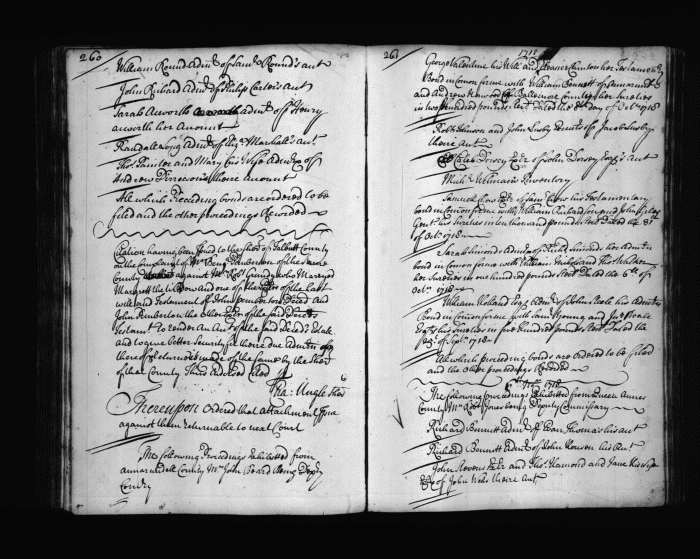 260
William Round Admr of Saml Round's Acct
John Richard Admr of Phillip Carter's Acct
Sarah Acworth Admx of Henry
Acworth her Amount
Randale Long Admr of Marshall's Acct
Thos. and Mary his Wife Admx of
Andrew there Amount
All which Preceding bonds are ordered to be
filed and the other proceedings Recorded
Citation having been Issued to the Sher of Talbott County
on the Complaint of Mr Benj Pemberton of the Same
County against Mr Robt Grundy who Marryed
Margarett the Widow and one of the of the Last
will and Testament of John Pemberton Deced and
John Pemberton the other of the said Deceds
Testamt to render an Acct of the said Deceds Estate
and to give better Security for there due Admn
thereof Returne is made of the same by the Sher
of that County Thus Endorsed
Ungle Sher
Thereupon Ordered that attachment Issue
against them returnable to next Court
The following Proceedings Exhibitted from
Annarundell County Mr John Beard Being Depty
Comry
261
1718
George Valentine his Will and
Bond in Comon forme with William Bennett of Annarundell
and of Baltemore County her Sureties
in two hundred pounds Sterl Dated the 8th day of Octr 1718
Robt Johnson and John Admrs of Jacob
there Acct
Caleb Dorsey Exr of John Dorsey Esqr's Acct
Michl Inventory
Samuell Exr of Saml his Testamentary
bond in Comon forme with William Richardson and John
Gent his Sureties in ten thousand pounds Sterl Dated the 8th
of Octr 1718
Sarah Simmons Admx of Richd Simmons her Admn
bond in Comon forme with William and Thos
her Sureties in one hundred pounds Sterl Dated the 6th of
Octr 1718
William Holland Esqr Admr of John his Admn
Bond in Comon forme with Saml Young and
Esqrs his Sureties in five hundred pounds Sterl Dated the
of Septr 1718
All which preceding bonds are ordered to be filed
and the other proceedings Recorded
1718
The following Proceedings Exhibitted from Queen Annes
County Mr Robt Jones being Deputy Commissary
Richard Bennett Admr of Evan Thomas his Acct
Richard Bennett Admr of John his Acct
John Stevens Exr and Thos Hamond and Jane his Wife
of John there Acct